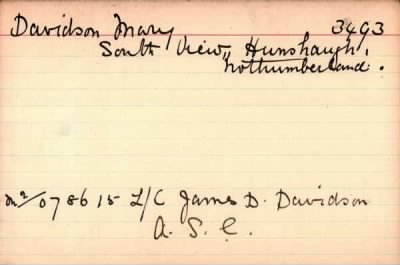 Davidson Mary 3493
South View, Hunshaugh,
Nothumberland.
M2/078615 L/C James D. Davidson
A. S. C.